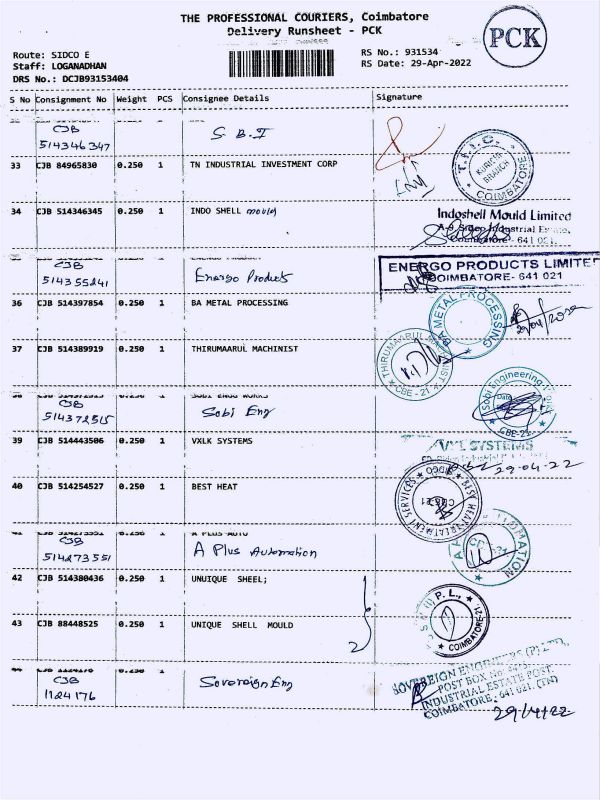 THE PROFESSIONAL COURIERS, Coimbatore
Delivery Runsheet - PCK
PCK
Route: SIDCO E
Staff: LOGANADHAN
DRS No.: DCJB93153404
RS No.: 931534
RS Date: 29-Apr-2022
S No Consignment No Weight PCS Consignee Details Signature
CJB
514346347 S B I
33 CJB 84965830 0.250 1 TN INDUSTRIAL INVESTMENT CORP
T.I.I.C. KURICHI BRANCH COIMBATORE
34 CJB 514346345 0.250 1 INDO SHELL mould
Indoshell Mould Limited
Industrial Estate,
Coimbatore - 641 021.
CJB
514355241 Energo Products
ENERGO PRODUCTS LIMITED
COIMBATORE- 641 021
36 CJB 514397854 0.250 1 BA METAL PROCESSING
BA METAL PROCESSING
29/04/2022
37 CJB 514389919 0.250 1 THIRUMAARUL MACHINIST
THIRUMAARUL MACHINIST CBE - 21
CJB
514372515 Sobi Eng
Sobi Engineering
CBE-21
39 CJB 514443506 0.250 1 VXLK SYSTEMS
SYSTEMS
29-04-22
40 CJB 514254527 0.250 1 BEST HEAT
BEST HEAT TREATMENT SERVICES SIDCO
A PLUS AUTO
CJB
514273551 A Plus Automation
42 CJB 514380436 0.250 1 UNUIQUE SHEEL;
43 CJB 88448525 0.250 1 UNIQUE SHELL MOULD
P. L., COIMBATORE-21.
CJB
1124176 Sovereign Eng
SOVEREIGN ENGINEERS (P) LTD.,
POST BOX No.
INDUSTRIAL ESTATE POST,
COIMBATORE - 641 021. (TN)
29/4/22